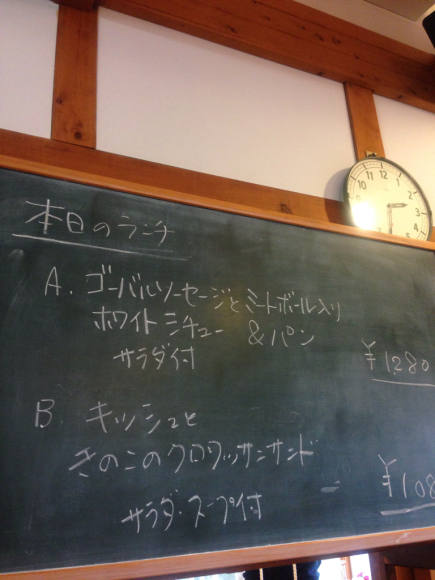 12
11
1
10
2
9
3
4
5
本日のランチ
A. ゴーバルソーセージとミートボール入り
ホワイトシチュー &パン
サラダ付
¥1280
B. キッシュと
きのこのクロワッサンサンド
サラダ・スープ付
¥108